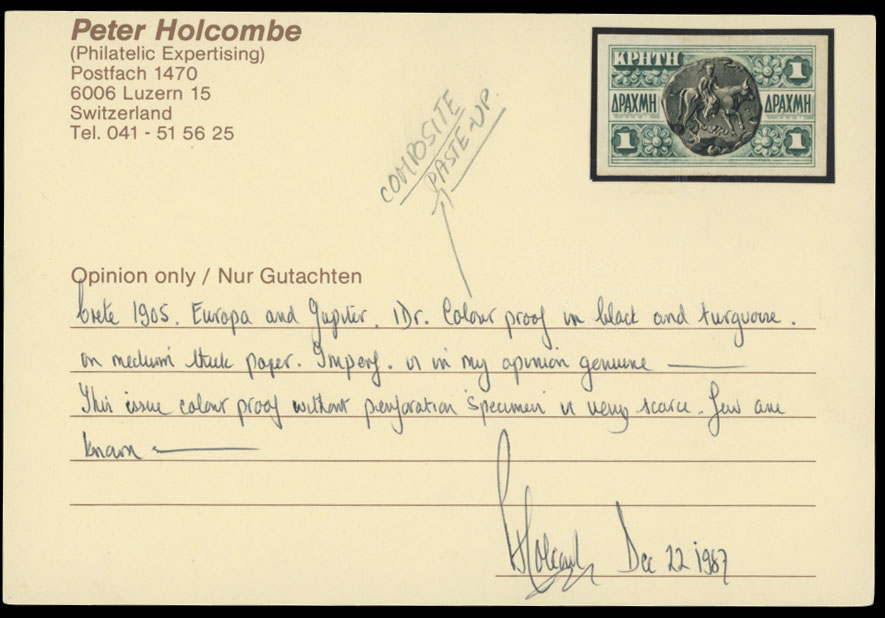 Peter Holcombe
(Philatelic Expertising)
Postfach 1470
6006 Luzern 15
Switzerland
Tel. 041 - 51 56 25
COMPOSITE
PASTE-UP.
ΚΡΗΤΗ 1
ΔΡΑΧΜΗ ΔΡΑΧΜΗ
1 1
Opinion only / Nur Gutachten
Crete 1905. Europa and Jupiter. 1Dr. Colour proof in black and turquoise.
on medium thick paper. Imperf. is in my opinion genuine
This issue colour proof without perforation 'specimen' is very scarce. Few are
known
Holcombe Dec 22 1987